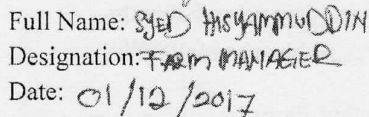 Full Name: SYED HISYAMMUDDIN
Designation: FARM MANAGER
Date: 01/12/2017